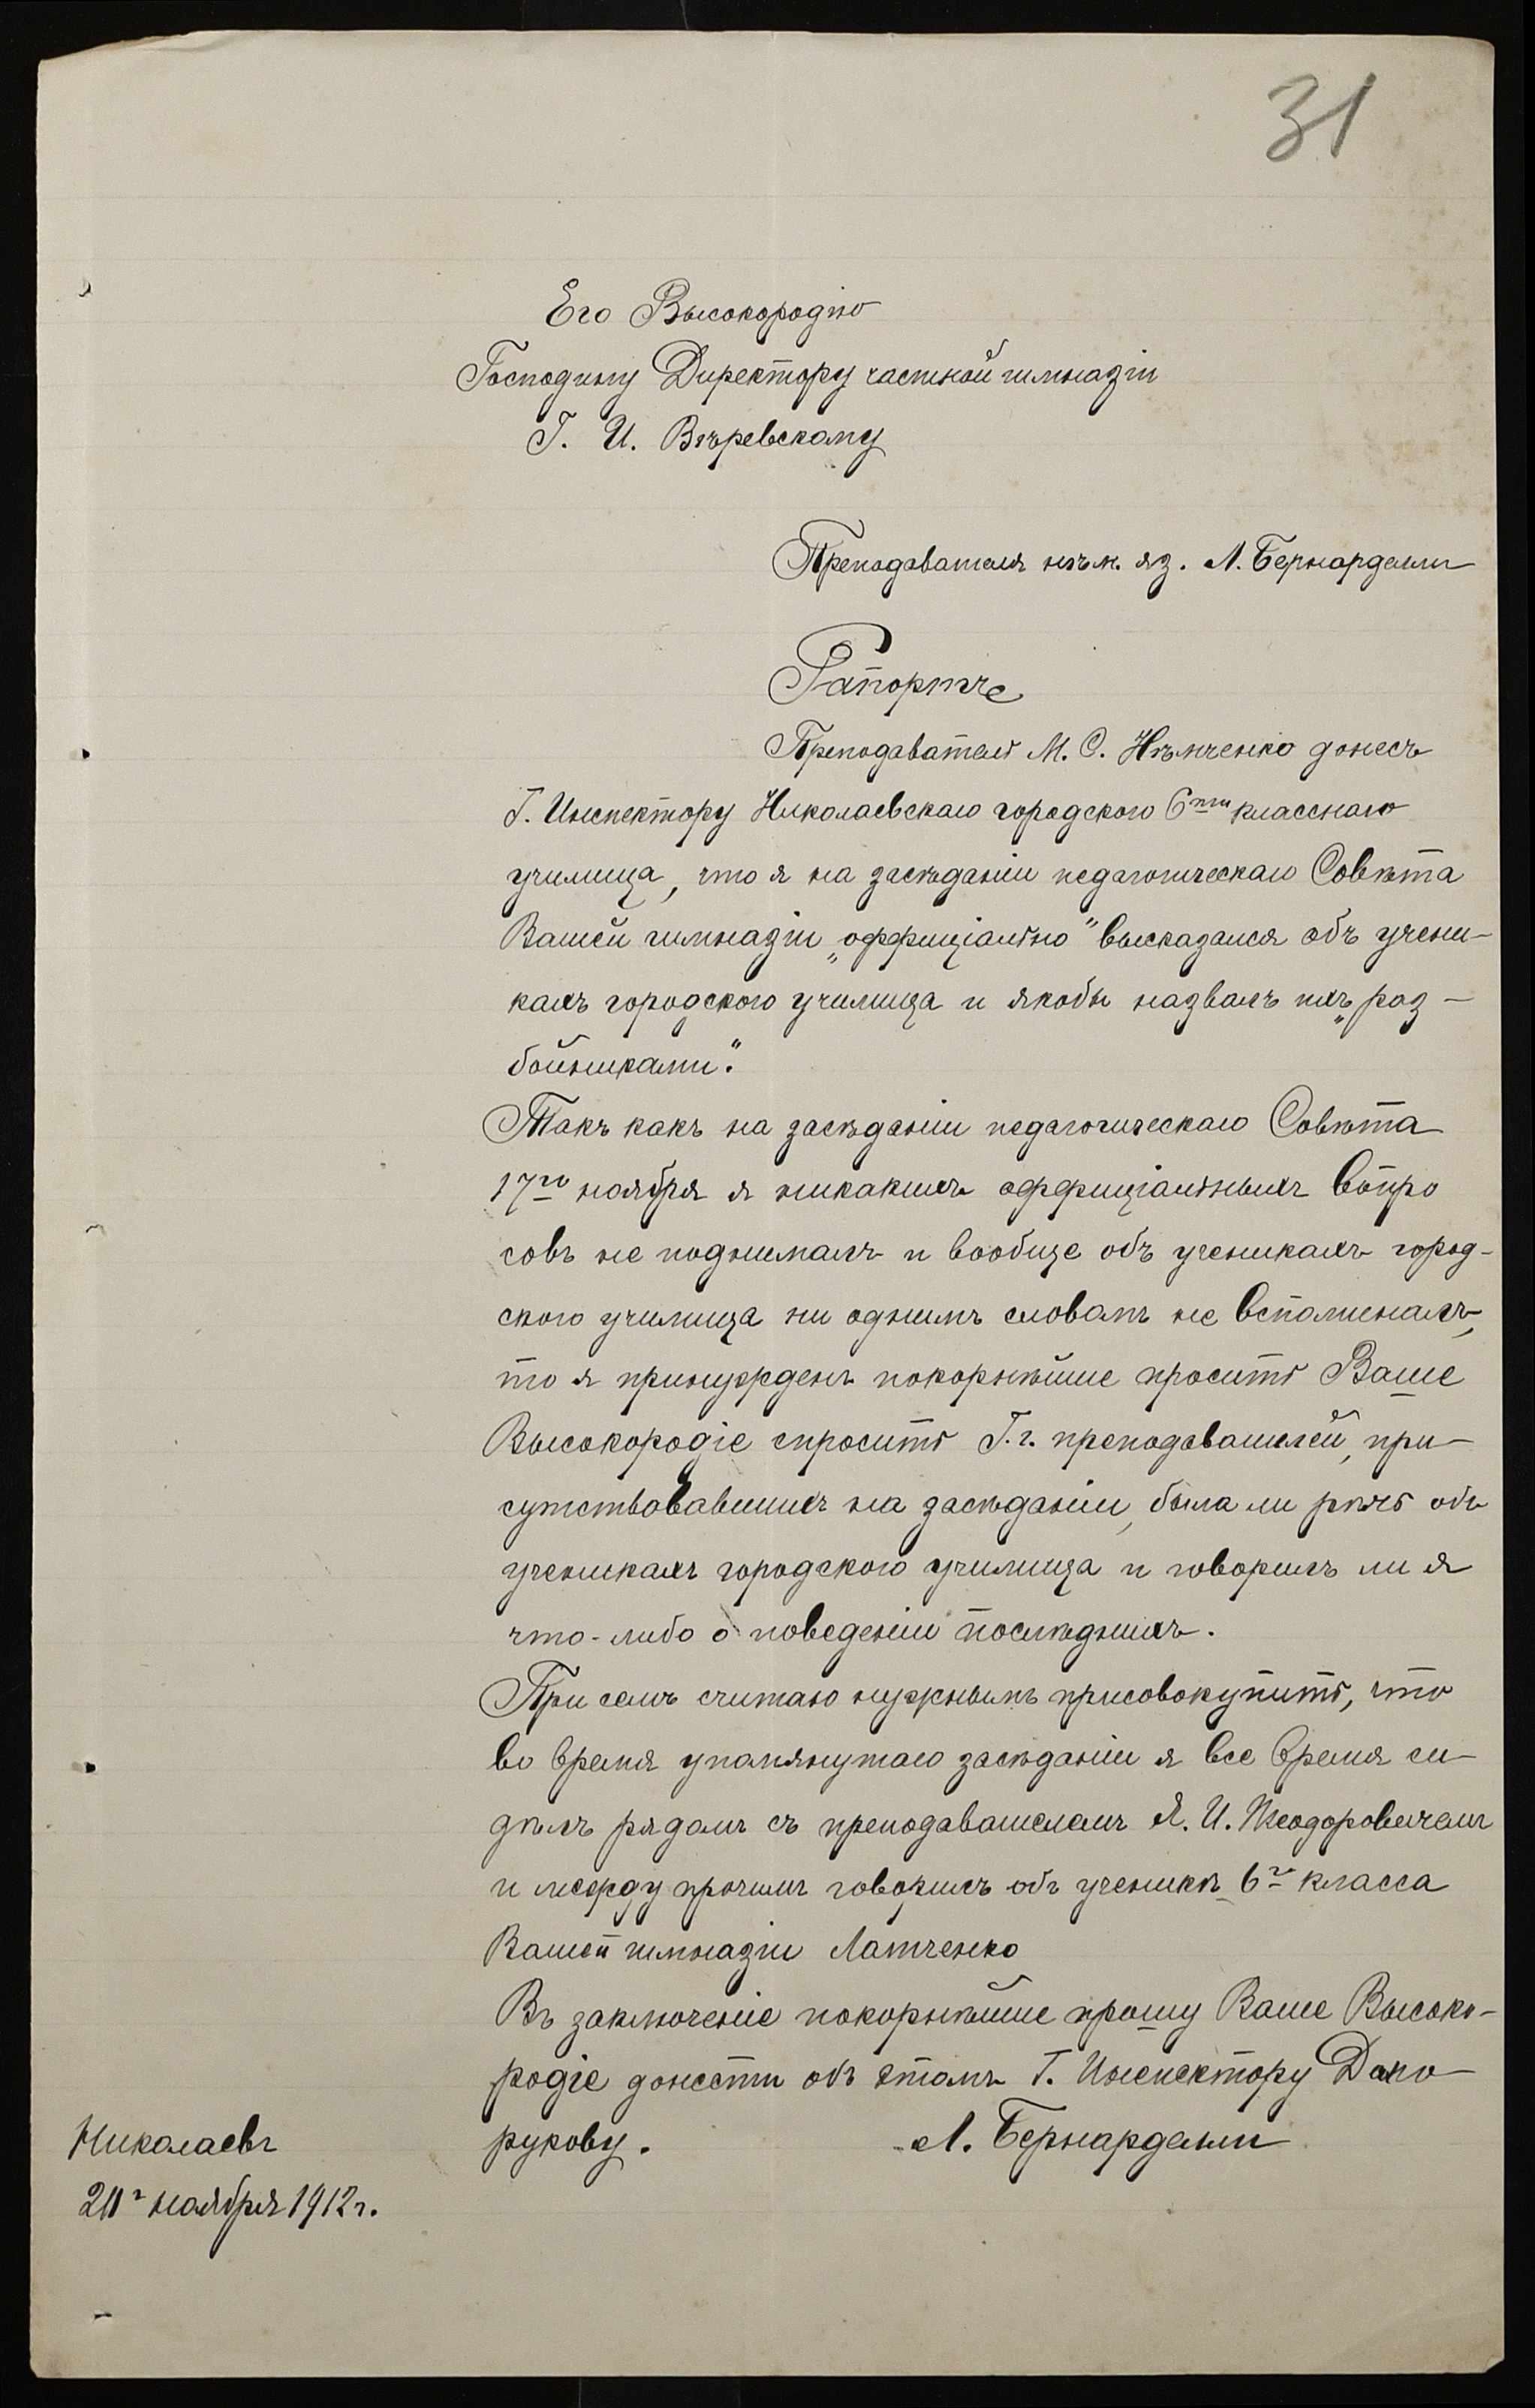 31
Его Высокородію
Господину Директору частной гимназіи
Г. И. Вѣревскому
Преподавателя нѣм. яз. Л. Бернарделли
Рапортъ
Преподаватель М. С. Нѣмченко донесъ
Г. Инспектору Николаевскаго городского 6ти класснаго
училища, что я на засѣданіи педагогическаго Совѣта
Вашей гимназіи „оффиціально" высказался объ учени-
кахъ городского училища и якобы назвалъ ихъ „раз-
бойниками".
Такъ какъ на засѣданіи педагогическаго Совѣта
17го ноября я никакихъ оффиціальныхъ вопро
совъ не поднималъ и вообще объ ученикахъ город-
ского училища ни однимъ словомъ не вспоминалъ,
то я принужденъ покорнѣйше просить Ваше
Высокородіе спросить Г.г. преподавателей, при-
сутствовавшихъ на засѣданіи, была ли рѣчь объ
ученикахъ городского училища и говорилъ ли я
что-либо о поведеніи послѣднихъ.
При семъ считаю нужнымъ присовокупить, что
во время упомянутаго засѣданіи я все время си-
дѣлъ рядомъ съ преподавателемъ Я. И. Теодоровичемъ
и между прочимъ говорилъ объ ученикѣ 6г класса
Вашей гимназіи Латченко
Въ заключеніе покорнѣйше прошу Ваше Высоко-
родіе донести объ этомъ Г. Инспектору
рукову. Л. Бернарделли
Николаевъ
ноября 1912г.